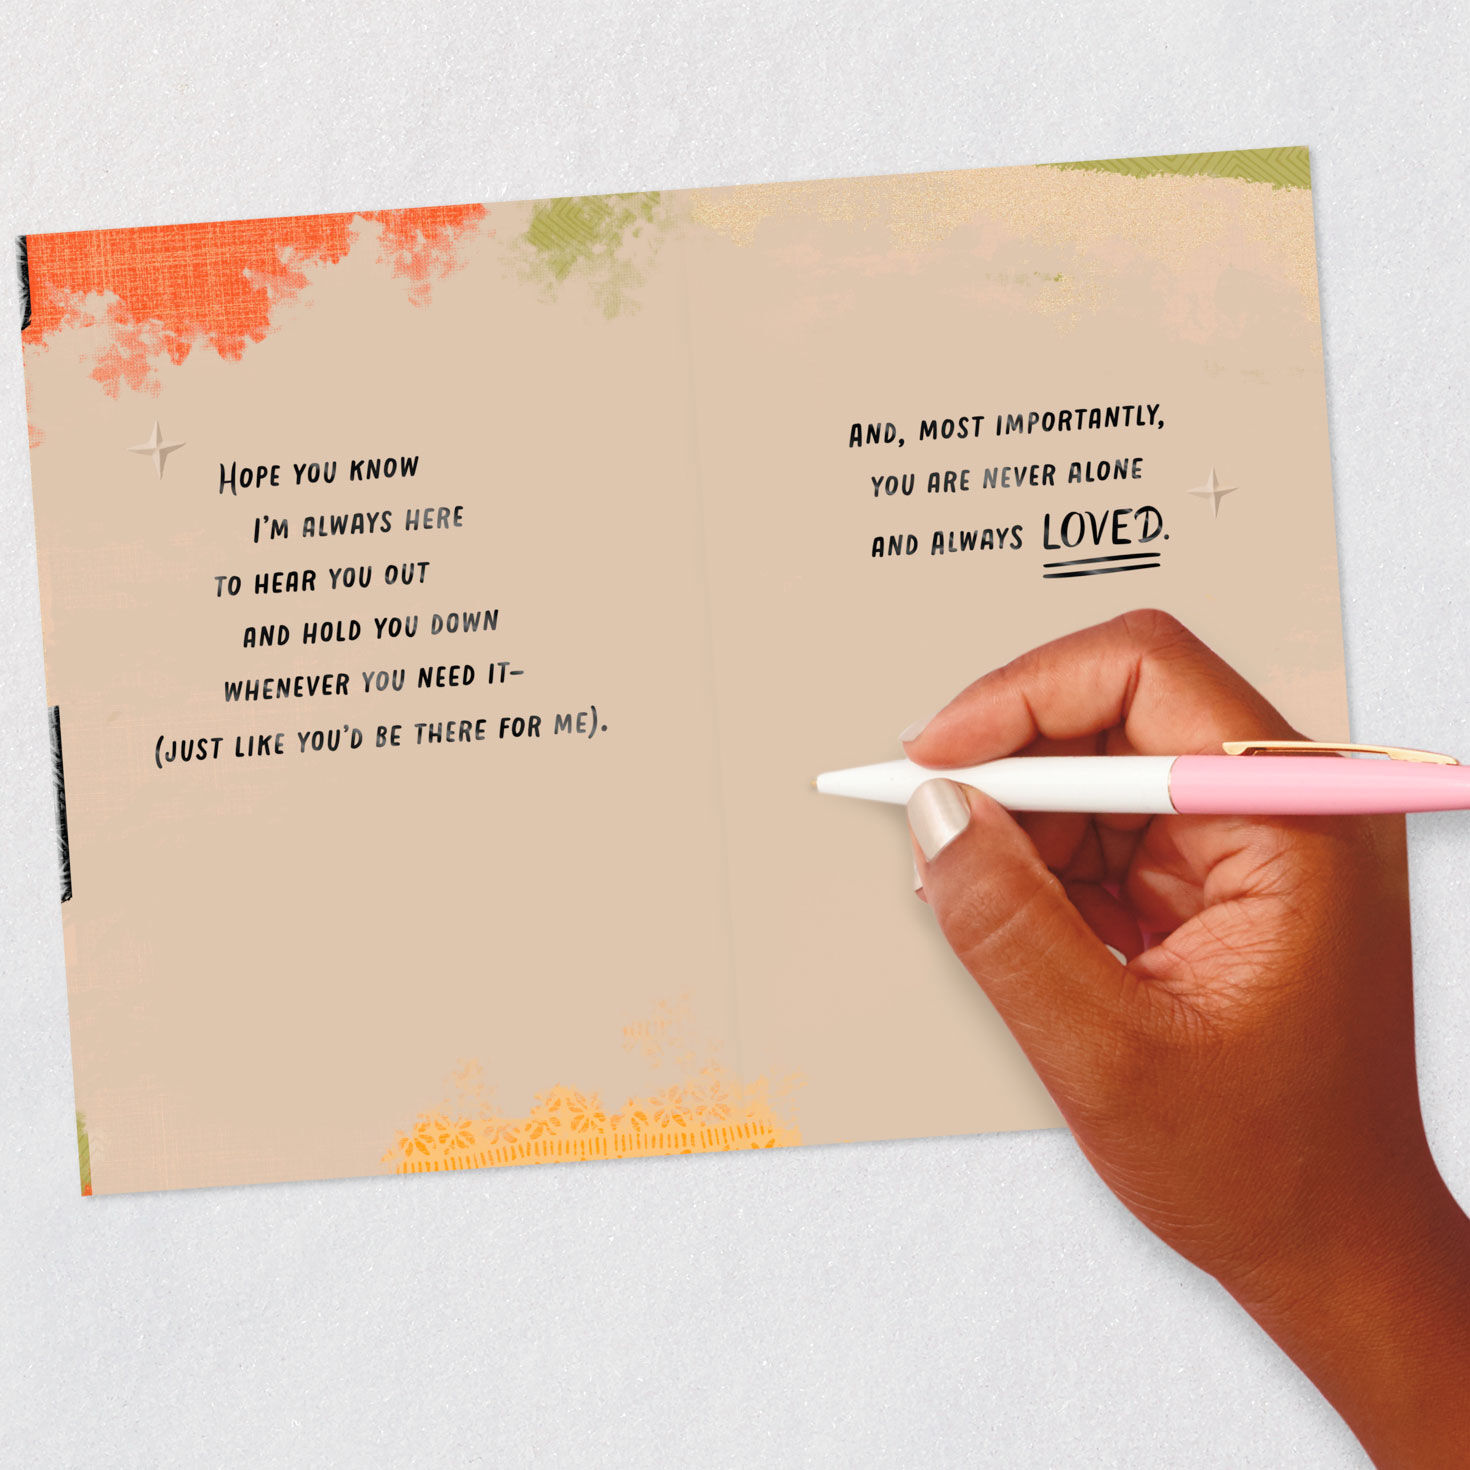 Hope you know
I'm always here
to hear you out
and hold you down
whenever you need it–
(just like you'd be there for me).
And, most importantly,
you are never alone
and always LOVED.